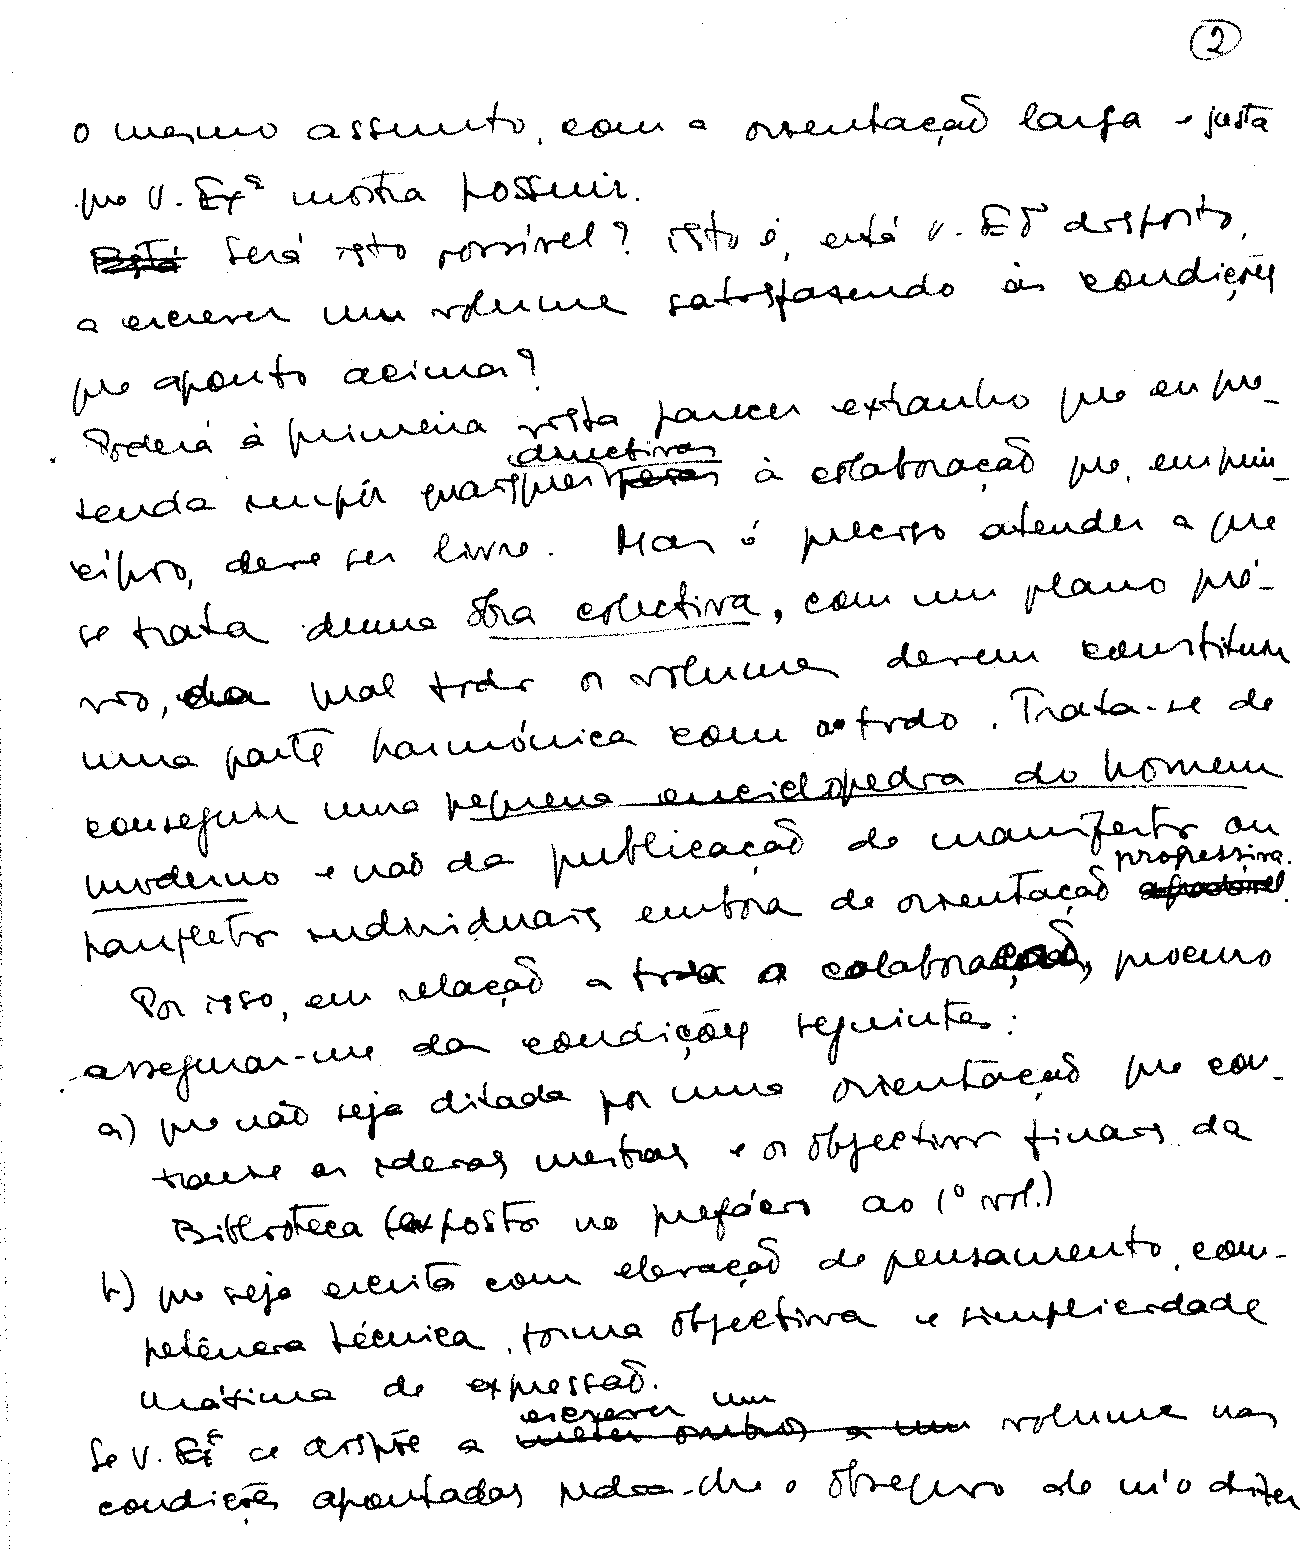 2
o mesmo assunto, com a orientação larga e justa
que V. Exª mostra possuir.
Está Será isto possível? isto é, está V. Exª disposto,
a escrever um volume satisfazendo às condições
que aponto acima?
Poderá à primeira vista parecer extranho que eu pre-
directivas
tenda impôr quaisquer à colaboração que, em prin-
cípio, deve ser livre. Mas é preciso atender a que
se trata duma obra colectiva, com um plano pró-
prio, da qual todos os volumes devem constituir
uma parte harmónica com o todo. Trata-se de
conseguir uma pequena enciclopedia do homem
moderno e não da publicação de manifestos ou
progressiva.
panfletos individuais embora de orientação
Por isso, em relação a toda a colaboração, procuro
assegurar-me das condições seguintes:
a) que não seja ditada por uma orientação que con-
trarie as ideias mestras e os objectivos finais da
Biblioteca (expostos no prefácio ao 1º vol.)
b) que seja escrita com elevação de pensamento, com-
petência técnica, forma objectiva e simplicidade
máxima de expressão.
escrever um
Se V. Exª se dispõe a meter ombros a um volume nas
condições apontadas peda-lhe o obsequio de m'o dizer